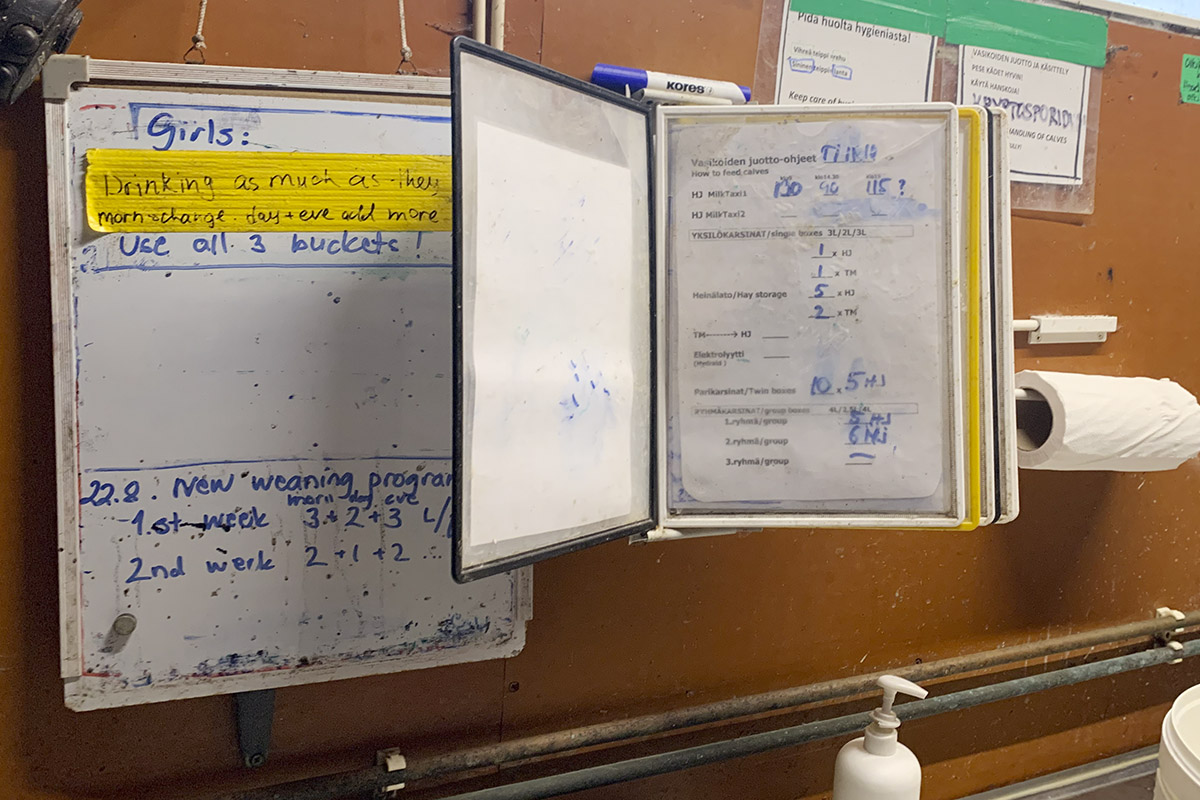 Girls:
Drinking as much as they
morn→change. day + eve add more
Use all 3 buckets!
22.8. New weaning program
morn day eve
1.st week 3 + 2 + 3 L/
2nd werk 2 + 1 + 2 ..
kores
Pidä huolta hygieniasta!
Vihreä teippi ryyhy
Sininen teippi lanta
Keep care of
VASIKOIDEN JUOTTO JA KÄSITTELY
PESE KÄDET HYVIN!
KÄYTÄ HANSKOJA!
KRYPTOSPORIDI
HANDLING OF CALVES
Vasikoiden juotto-ohjeet
How to feed calves
HJ MilkTaxi1 90 115 ?
HJ MilkTaxi2
YKSILÖKARSINAT/single boxes 3L/2L/3L
1 x HJ
1 x TM
Heinälato/Hay storage 5 x HJ
2 x TM
TM--------> HJ
Elektrolyytti
Parikarsinat/Twin boxes 10 x 5 HJ
RYHMÄKARSINAT/group boxes 4L/2,5L/4L
1.ryhmä/group 5 HJ
2.ryhmä/group 6 HJ
3.ryhmä/group